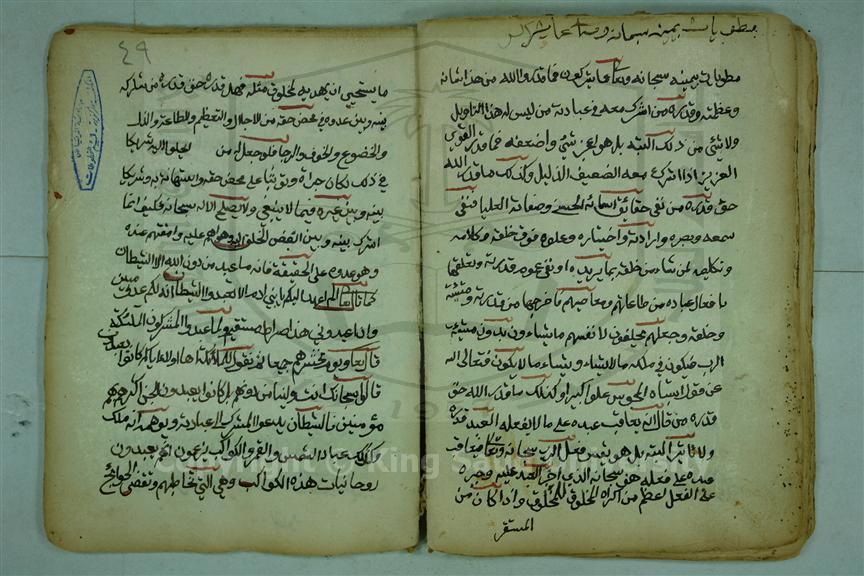 مطويات بيمينه سبحانه وتعالى عما يشركون
مطويات بيمينه سبحانه وتعالى عما يشركون فما قدروا الله من هذا شانه
وعظمته وقدره من اشرك معه في عبادته من ليس له هذا التاويل
ولا شي من ذلك البته بل هو اعجز شي واضعفه فما قدر القوي
العزيز اذا اشرك معه الضعيف الذليل وكذلك ما قدر الله
حق قدره من نفى حقائق اسمائه الحسنى وصفاته العليا فنفى
سمعه وبصره وارادته واختياره وعلوه فوق خلقه وكلامه
وتكليمه لمن شاء من خلقه بما يريده او نفى عموم قدرته وتعلقها
بافعال عباده من طاعاتهم ومعاصيهم فاخرجها من قدرته ومشيئته
وخلقه وجعلهم يخلقون لانفسهم ما يشاءون بدون مشيئة
الرب فيكون في ملكه ما لا يشاء ويشاء ما لا يكون فتعالى الله
عن قول اشباه المجوس علوا كبيرا وكذلك ما قدر الله حق
قدره من قال انه يعاقب عبده على ما لا يفعله العبد
ولا تاثير البته بل هو نفس فعل الرب سبحانه وتعالى فيعاقب
عبده على فعله هو سبحانه الذي اجبر العبد عليه وجبره
على الفعل اعظم من اكراه المخلوق للمخلوق واذا كان من
المستقر
٤٩
ما يستحيي ان يهديه لمخلوق مثله فهل قدره حق قدره من شاركه
بينه وبين عدوه في محض حقه من الاجلال والتعظيم والطاعة والذل
والخضوع والخوف والرجا فلو جعل من الخلق اليه شريكا
في ذلك لكان جراه وتوثبا على محض حقه واستهانة به وشريكا
بينه وبين غيره فيما لا ينبغي ولا يصلح الا له سبحانه فكيف انما
اشرك بينه وبين ابغض الخلق اليه واهونهم عليه وامقتهم عنده
وهو عدوه على الحقيقة فانه ما عبد من دون الله الا الشيطان
كما قال تعالى الم اعهد اليكم يا بني ادم ان لا تعبدوا الشيطان انه لكم عدو مبين
وان اعبدوني هذا صراط مستقيم ولما عبدوا المشركون الملائكة
قال تعالى ويوم يحشرهم جميعا ثم يقول للملائكة اهاولا اياكم كانوا يعبدون
قالوا سبحانك انت ولينا من دونهم بل كانوا يعبدون الجن اكثرهم بهم
مؤمنين فالشيطان يدعوا المشرك الى عبادته ويوهمه انه ملك
وكذلك عباد الشمس والقمر والكواكب يزعمون انهم يعبدون
روحانيات هذه الكواكب وهي التي تخاطبهم وتقضى الحوائج